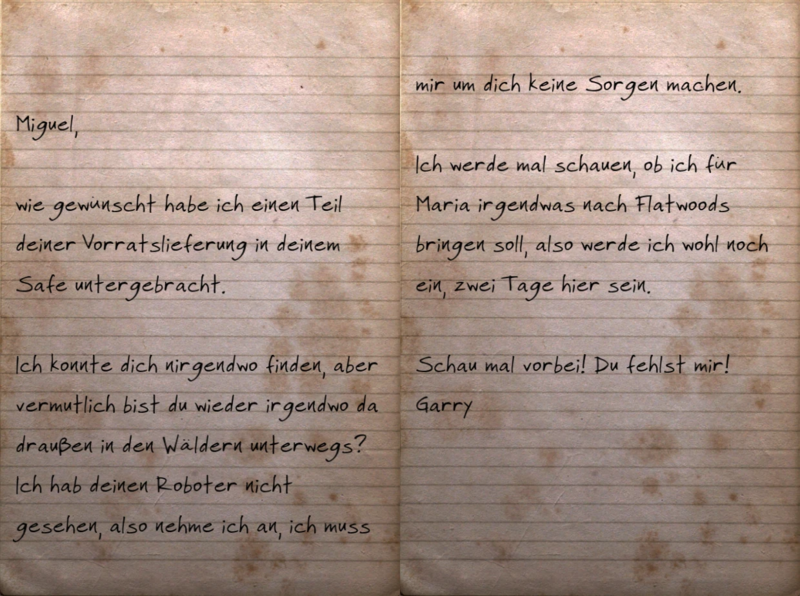 Miguel,
wie gewünscht habe ich einen Teil
deiner Vorratslieferung in deinem
Safe untergebracht.
Ich konnte dich nirgendwo finden, aber
vermutlich bist du wieder irgendwo da
draußen in den Wäldern unterwegs?
Ich hab deinen Roboter nicht
gesehen, also nehme ich an, ich muss
mir um dich keine Sorgen machen.
Ich werde mal schauen, ob ich für
Maria irgendwas nach Flatwoods
bringen soll, also werde ich wohl noch
ein, zwei Tage hier sein.
Schau mal vorbei! Du fehlst mir!
Garry